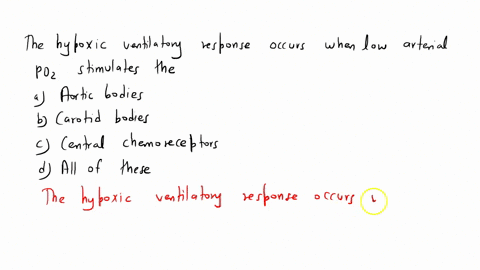 The hypoxic ventilatory response occurs when low arterial
PO2 stimulates the
a) Aortic bodies
b) Carotid bodies
c) Central chemoreceptors
d) All of these
The hypoxic ventilatory response occurs